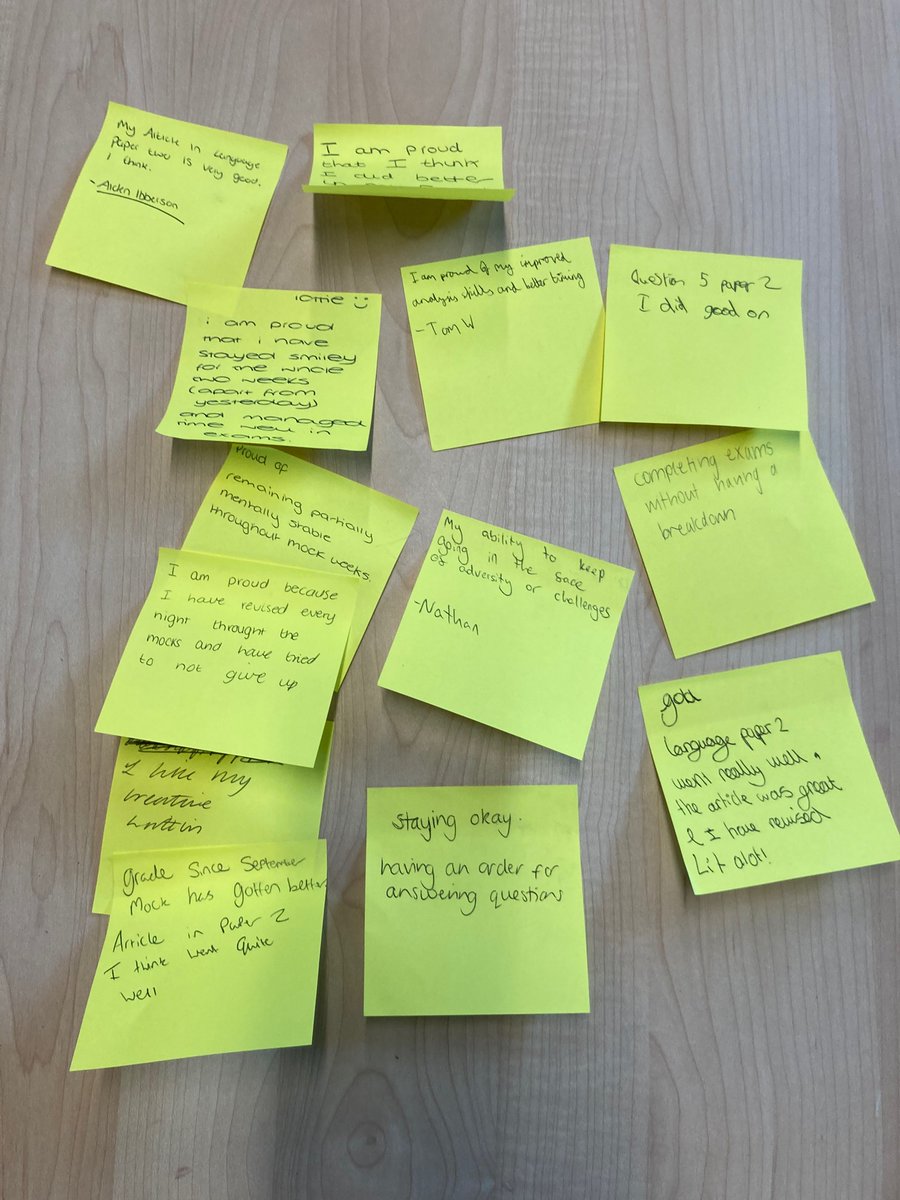 My Article in Language
Paper two is very good.
i think.
- Aiden Ibberson
I am proud
that I think
I did better
I am proud of my improved
analysis skills and better timing
- Tom W
Question 5 paper 2
I did good on
lottie :)
i am proud
that i have
stayed smiley
for the whole
two weeks
(apart from
yesterday)
and managed
time well in
exams.
Proud of
remaining partially
mentally stable
throughout mock weeks
completing exams
without having a
breakdown
My ability to keep
going in the face
of adversity or challenges
-Nathan
I am proud because
I have revised every
night throught the
mocks and have tried
to not give up
language paper 2
went really well.
the article was great
& I have revised
Lit alot!
I like my
creative
staying okay.
having an order for
answering questions
grade since September
Mock has gotten better.
Article in Paper 2
I think went quite
well